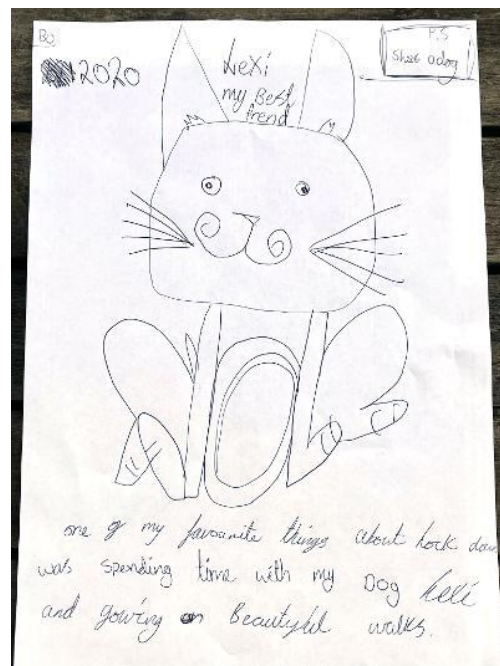 Bo
P.S
Shes a dog
2020
Lexi
my Best
frend
one of my favourite things about lock down
was spending time with my Dog lexi
and gowing on Beautyful walks.